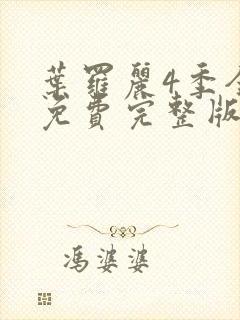 葉羅麗4季全
免費完整版
馮婆婆